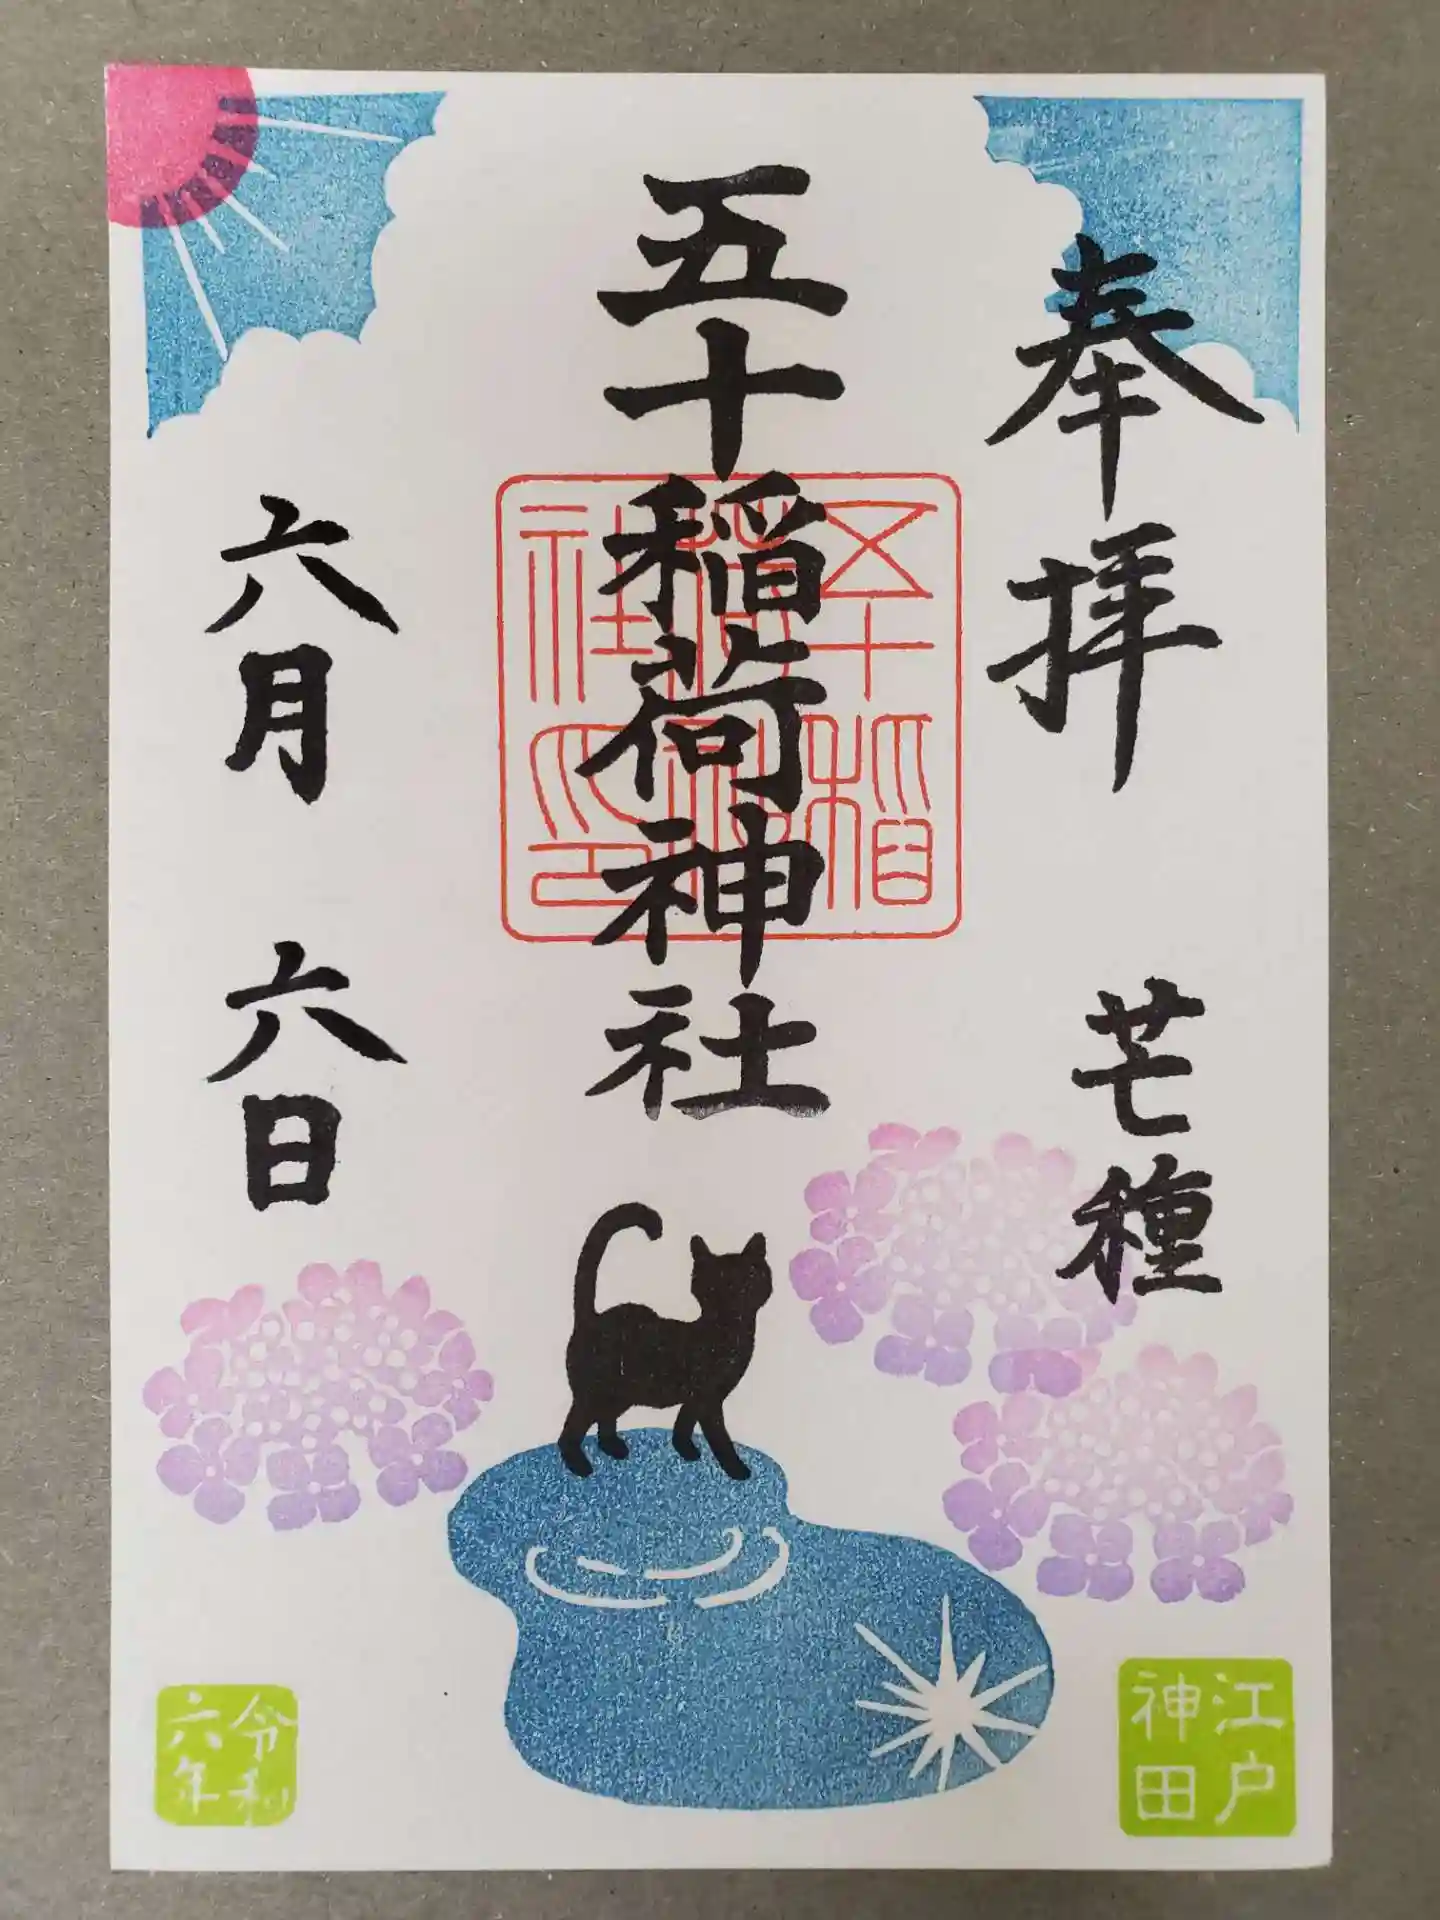 奉拝
芒種
五十稲荷神社
五十稲荷神社印
六月
六日
江戸
神田
令和
六年